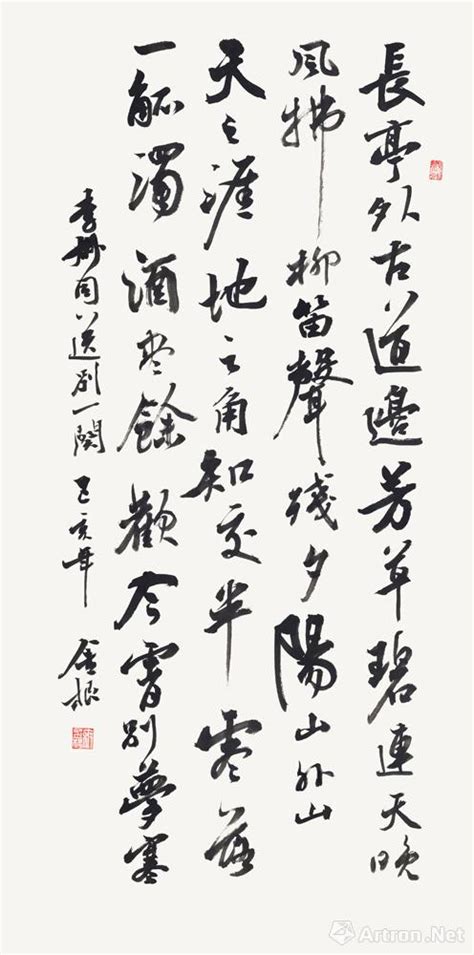 長亭外古道邊芳草碧連天晚
風拂柳笛聲殘夕陽山外山
天之涯地之角知交半零落
一觚濁酒盡餘歡今宵別夢寒
李叔同送別一闋 己亥年 金
Artron.Net